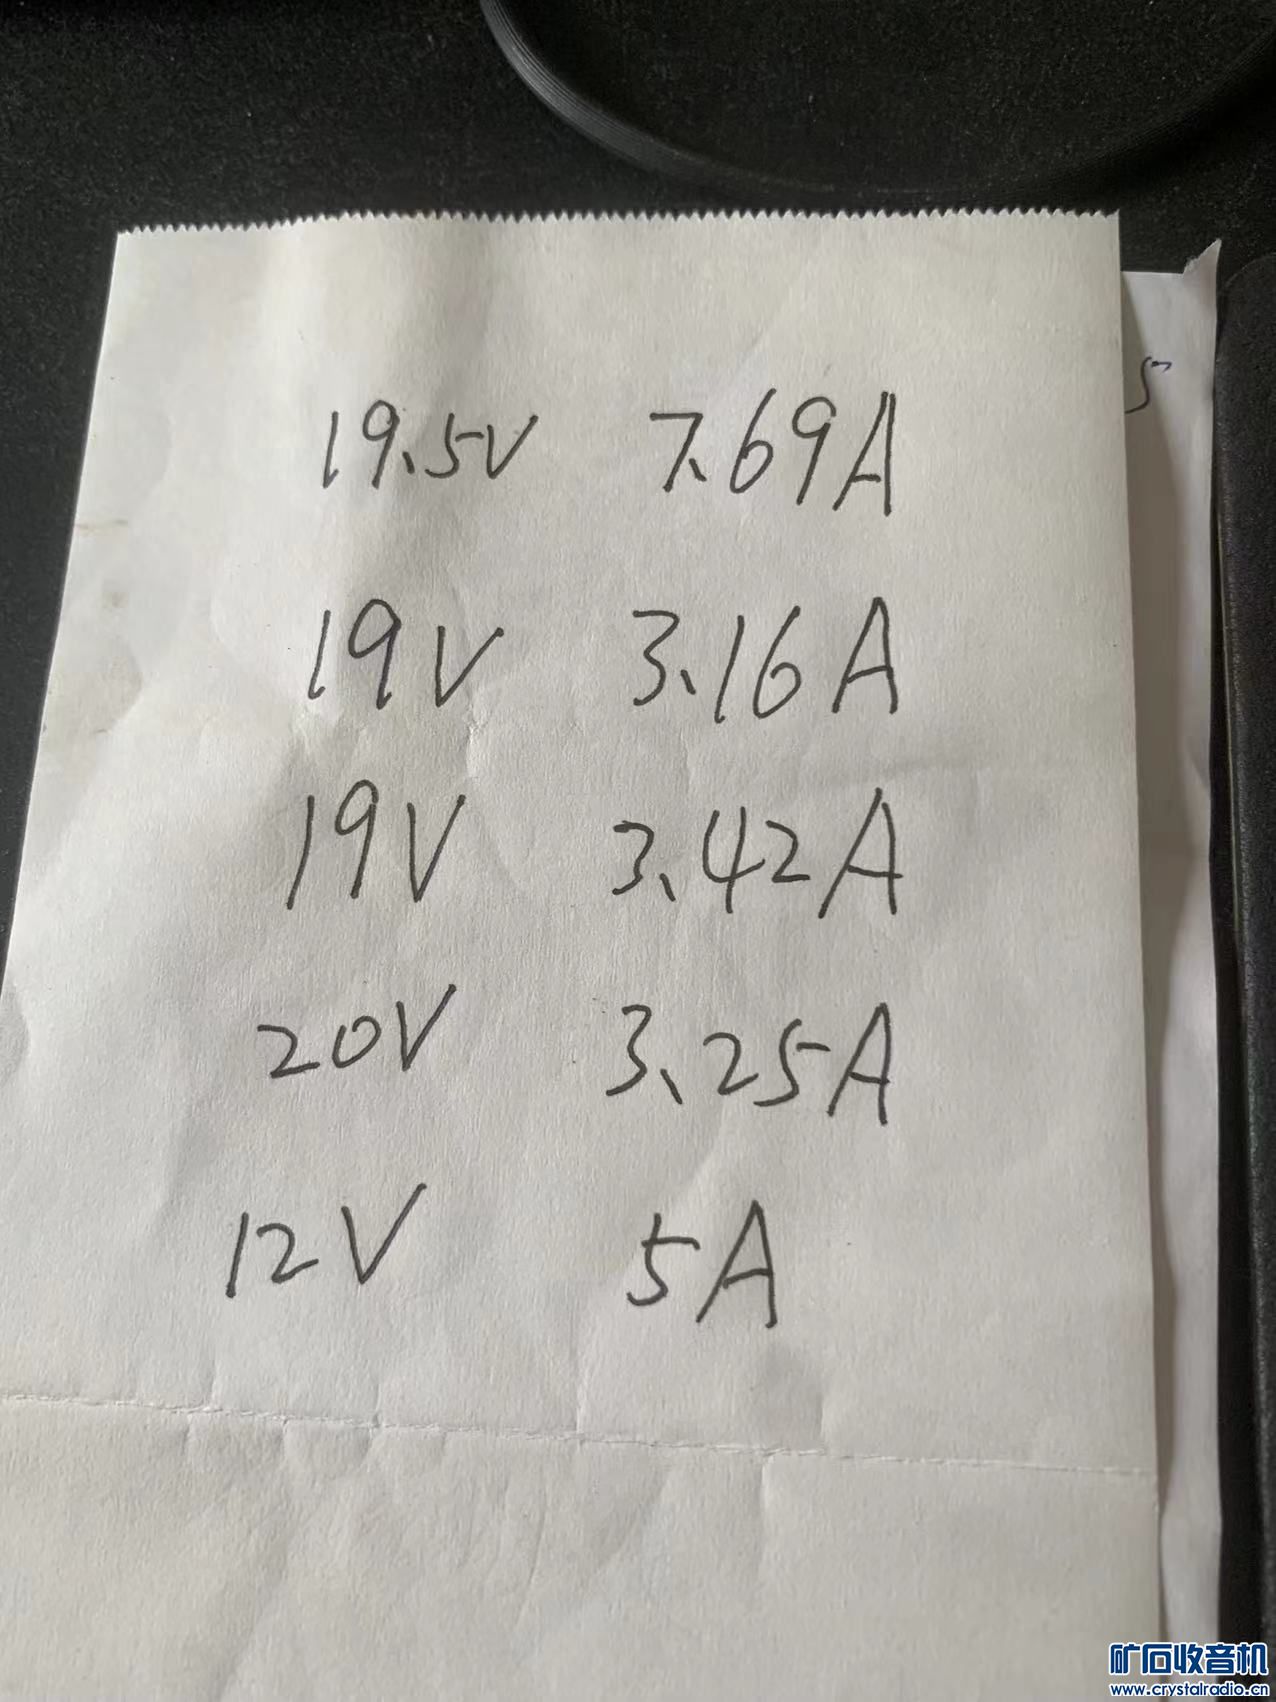 19.5V 7.69A
19V 3.16A
19V 3.42A
20V 3.25A
12V 5A
矿石收音机
www.crystalradio.cn